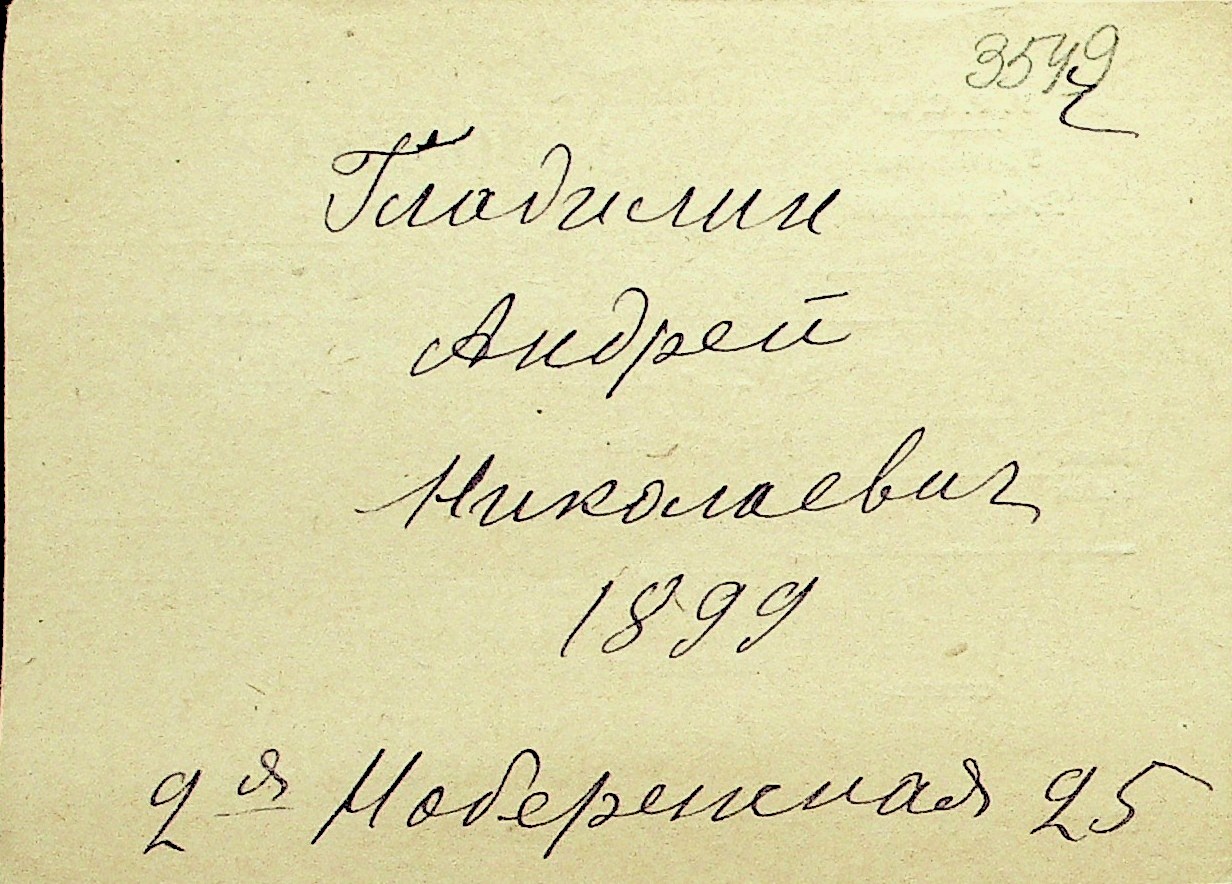 3549
Гладилин
Андрей
Николаевич
1899
2ая Набережная 25